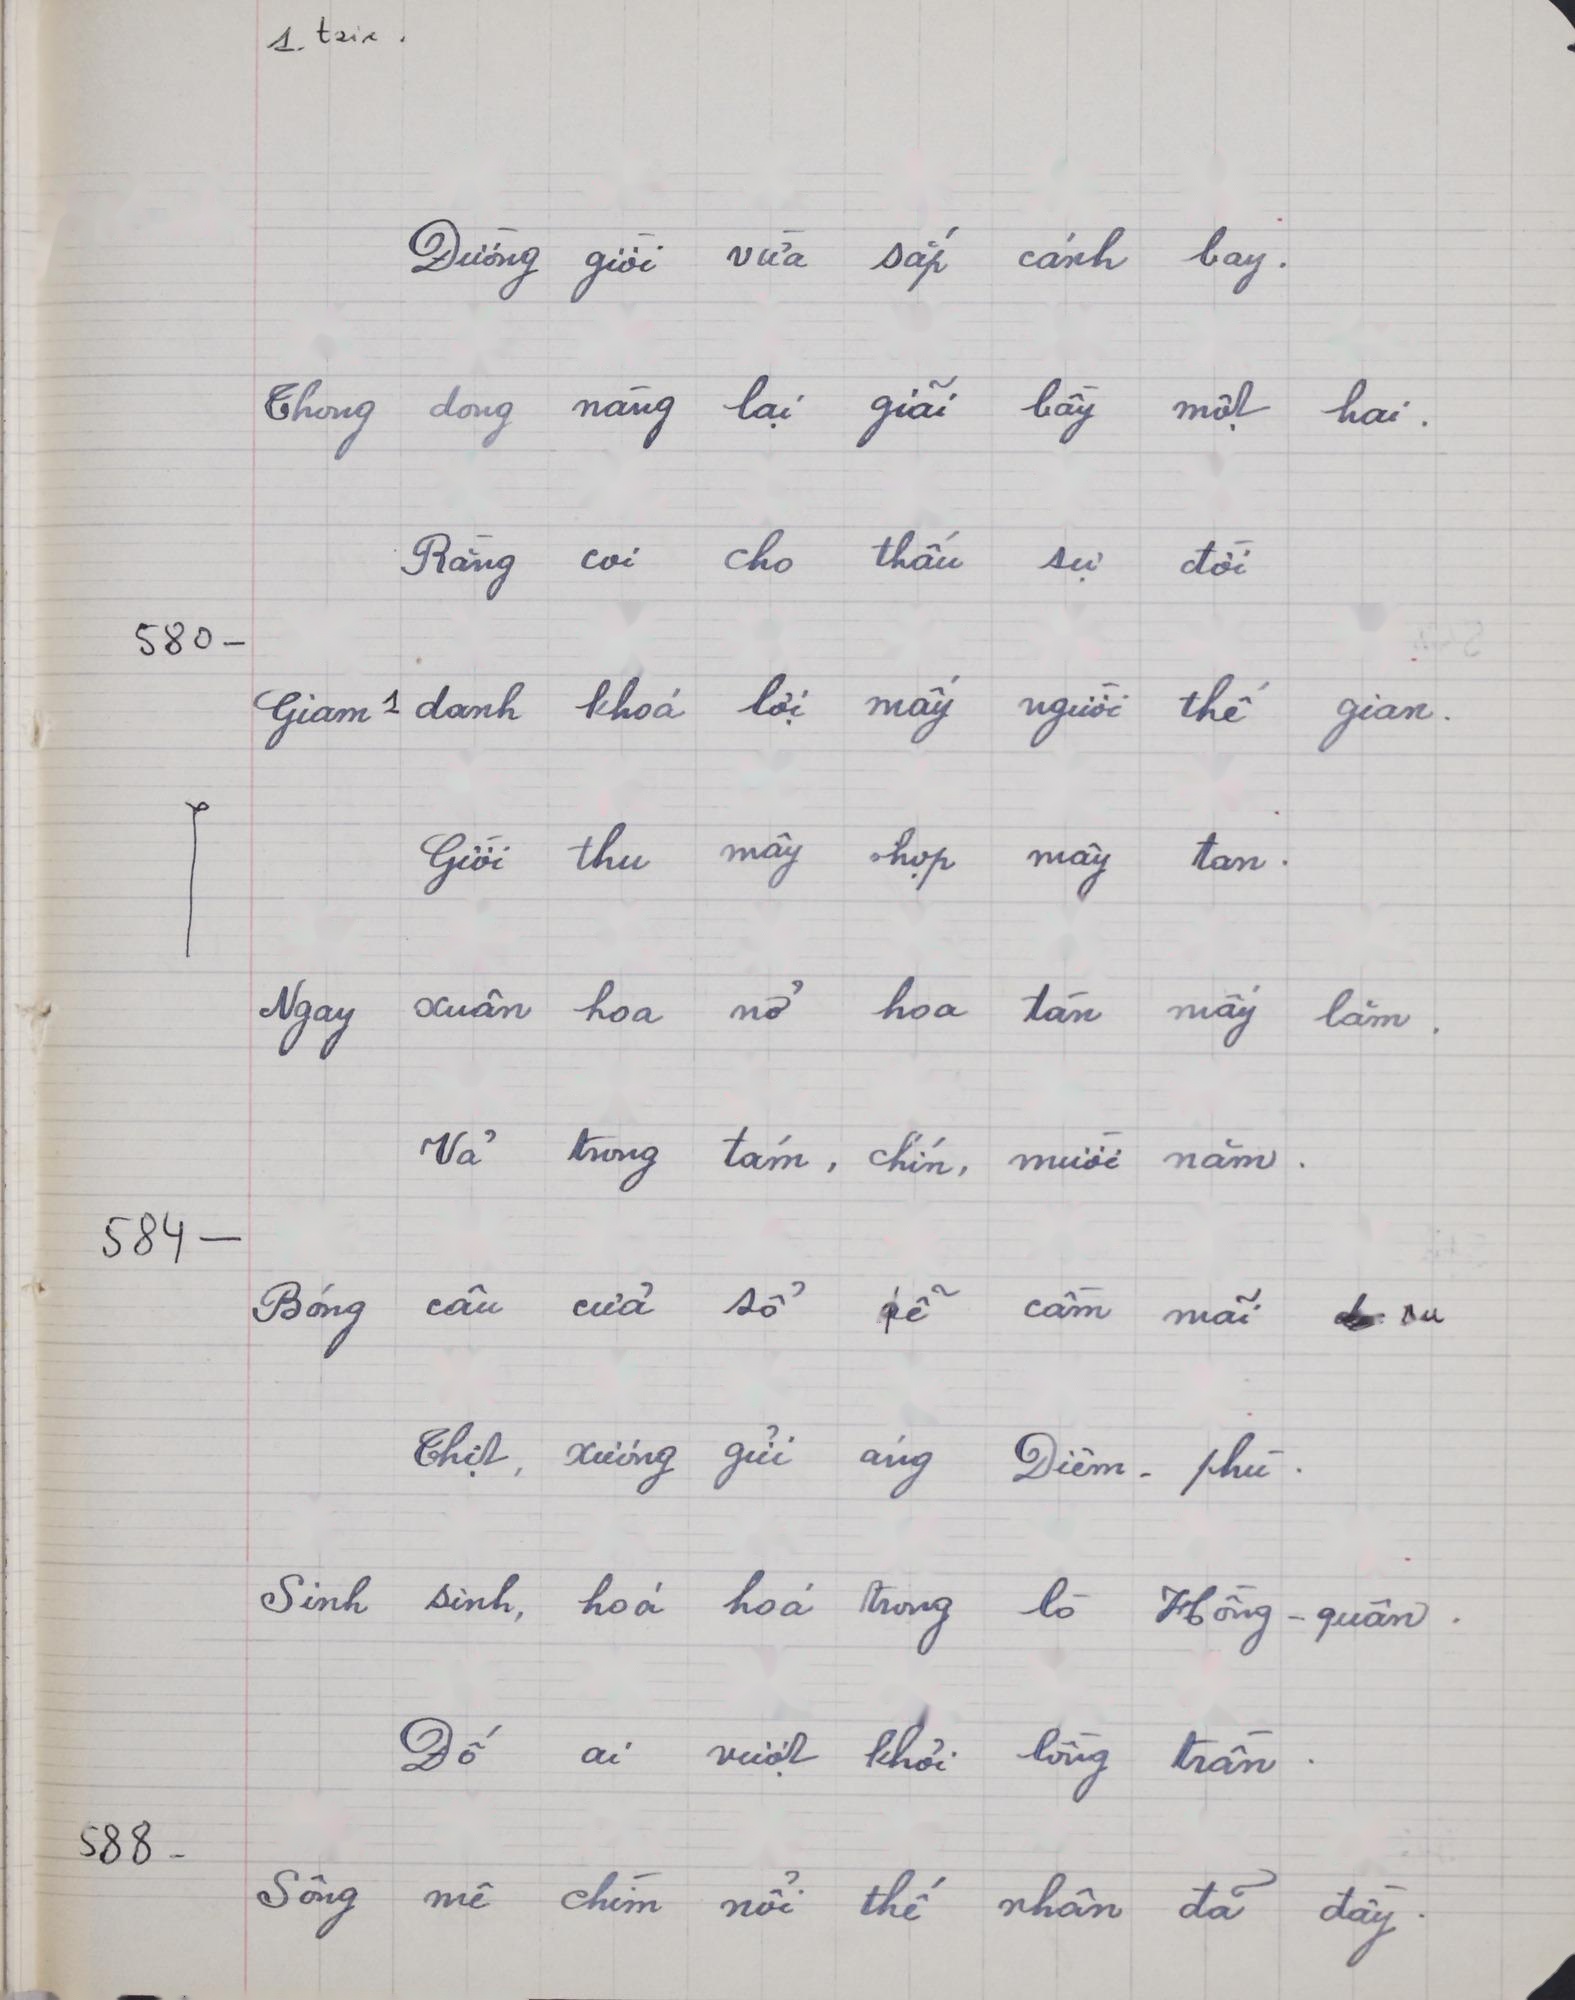 1. trix.
Đường giời vừa sắp cánh bay.
Thong dong nàng lại giãi bầy một hai.
Rằng coi cho thấu sự đời
580-
Giam 1 danh khoá lợi mấy người thế gian.
Giời thu mây họp mây tan.
Ngay xuân hoa nở hoa tàn mấy lăm.
Vả trong tám, chín, mười năm.
584-
Bóng câu cửa sổ dễ cầm mãi ru
Thịt, xương gửi áng Diêm-phù.
Sinh sinh, hoá hoá trong lò Hồng-quân.
Đố ai vượt khỏi lồng trần.
588-
Sông mê chìm nổi thế nhân đã đầy.